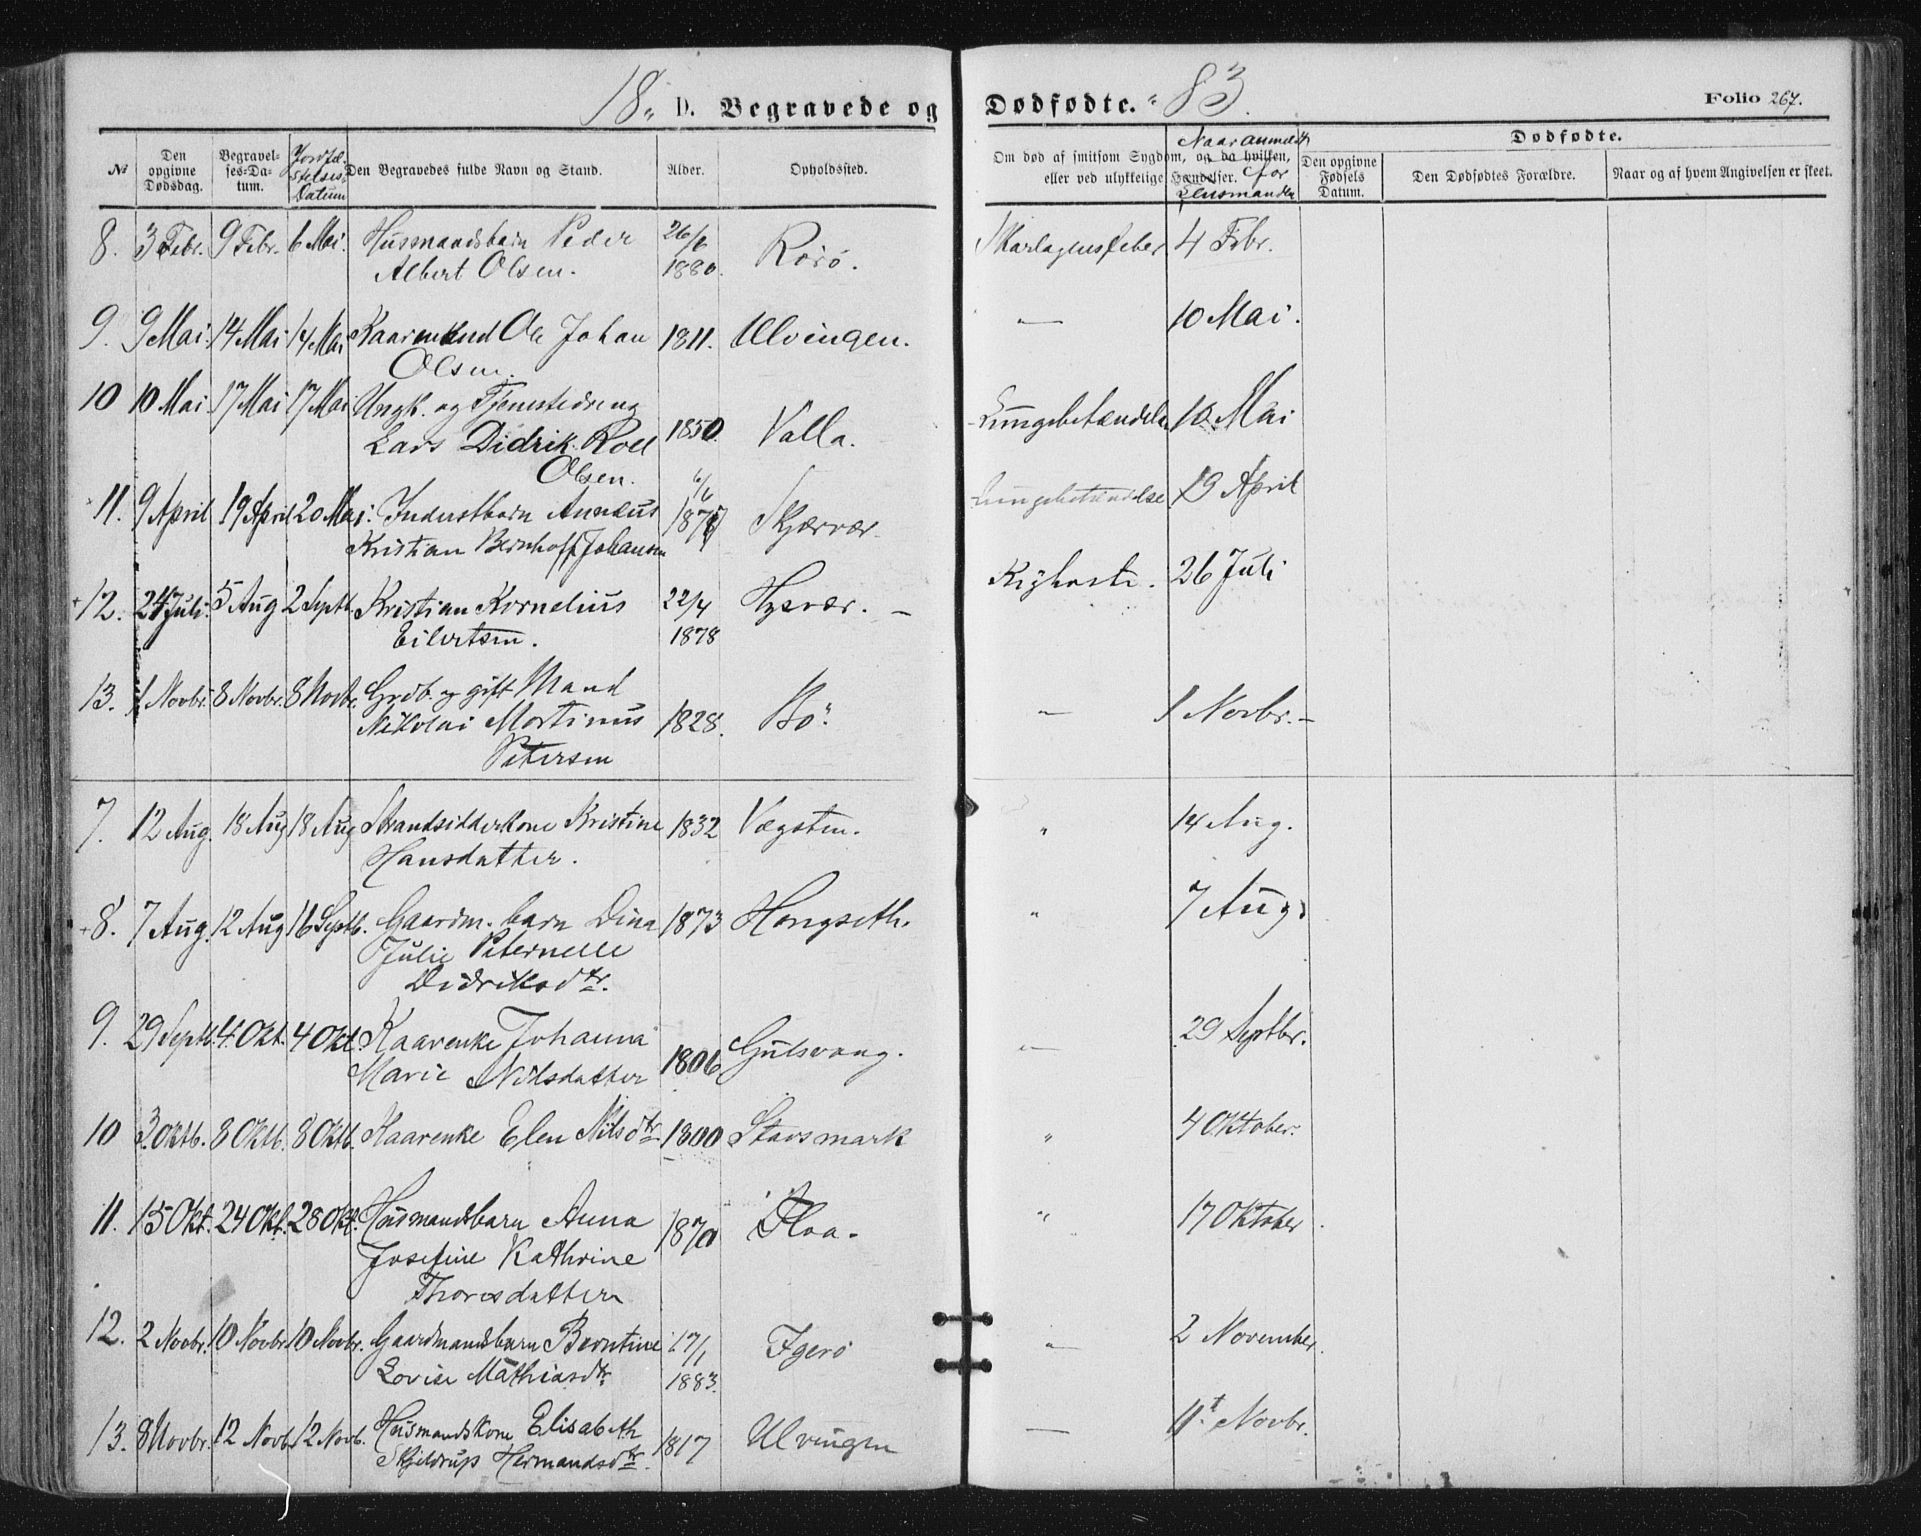 18 „ D. Begravede og Dødfødte. „ 83.
Folio 267.
№
Den opgivne Dødsdag.
Begravelses-Datum.
Jordfæstelses-Datum
Den Begravedes fulde Navn og Stand.
Alder.
Opholdssted.
Om død af smitsom Sygdom, og da hvilken,
eller ved ulykkelige Hændelser.
Naar anmeldt for Lensmanden
Dødfødte.
Den opgivne Fødsels Datum.
Den Dødfødtes Forældre.
Naar og af hvem Angivelsen er skeet.
8. 3 Febr. 9 Febr. 6 Mai. Husmandsbarn Peder 26/6 Rørø. Skarlagensfeber 4 Febr.
Albert Olsen. 1880.
9. 9 Mai. 14 Mai 14 Mai Kaarmand Ole Johan 1811. Ulvingen. — 10 Mai.
Olsen.
10 10 Mai. 17 Mai 17 Mai Ungk. og Tjenestedreng
Lars Didrik Roll 1850. Valla. Lungebetændelse 10 Mai
Olsen.
11. 9 April 19 April 20 Mai. Inderstbarn Annæus 6/6 Skjærvær. Lungebetændelse 19 April
Kristian Bernhoff Johansen
12. 24 Juli. 5 Aug 2 Septb. Kristian Kornelius 22/4 Hysvær. — Kighoste. 26 Juli
Eilertsen. 1878
13. 1 Novbr. 8 Novbr. 8 Novbr. Grdb. og gift Mand
Nikolai Mortinus 1828. Bø. — 1 Novbr. —
Petersen
7. 12 Aug. 18 Aug 18 Aug Strandsidderkone Kristine 1832 Vægsten. „ 14 Aug.
Hansdatter.
+8. 7 Aug. 12 Aug 16 Septb. Gaardm. barn Dina 1873 Hongseth. „ 7 Aug.
Julie Peternelle
Didriksdtr.
9. 29 Septb. 4 Okt. 4 Okt. Kaarenke Johanna — 29 Septbr.
Marie Nilsdatter 1806 Gulsvaag.
10 3 Oktb. 8 Oktb. 8 Oktb. Kaarenke Elen Nilsdtr 1800 Stavsmark „ 4 Oktober.
11. 15 Okt. 24 Okt. 28 Okt. Husmandsbarn Anna 1870 Floa. „ 17 Oktober.
Josefine Kathrine
Thoresdatter
12. 2 Novbr. 10 Novbr. 10 Novbr. Gaardmandsbarn Berntine 17/1 Igerø „ 2 November.
Lovise Mathiasdtr 1883.
13. 8 Novbr. 12 Novb. 12 Novb. Husmandskone Elisabeth 1817 Ulvingen — 11t Novbr.
Skjeldrup Hermandsdtr.